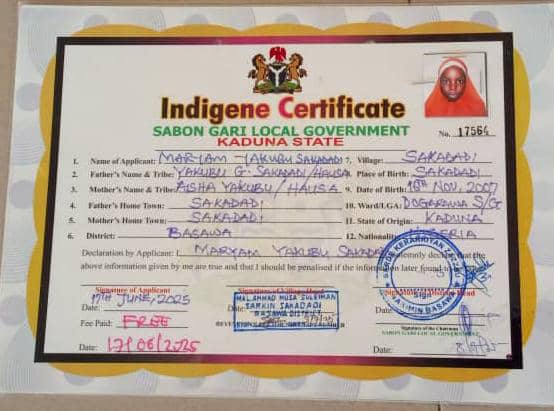 Indigene Certificate
SABON GARI LOCAL GOVERNMENT
KADUNA STATE
No. 17564
1. Name of Applicant: MARYAM YAKUBU SAKADADI 7. Village: SAKADADI
2. Father's Name & Tribe: YAKUBU G. SAKADADI/HAUSA 8. Place of Birth: SAKADADI
3. Mother's Name & Tribe: AISHA YAKUBU/HAUSA 9. Date of Birth: 16TH NOV, 2007
4. Father's Home Town: SAKADADI 10. Ward/LGA: DOGARAWA S/G
5. Mother's Home Town: SAKADADI 11. State of Origin: KADUNA
6. District: BASAWA 12. Nationality:
Declaration by Applicant: I, MARYAM YAKUBU SAKADADI solemnly declare that the
above information given by me are true and that I should be penalised if the information later found to be
Signature of Applicant
Date: 17TH JUNE, 2025
Fee Paid: FREE
Date: 17/06/2025
MAL. AHMAD MUSA SULEIMAN
SARKIN SAKADADI
BASAWA DISTRICT
Date:
Signature of the Chairman
SABON GARI LOCAL GOVERNMENT
Date: